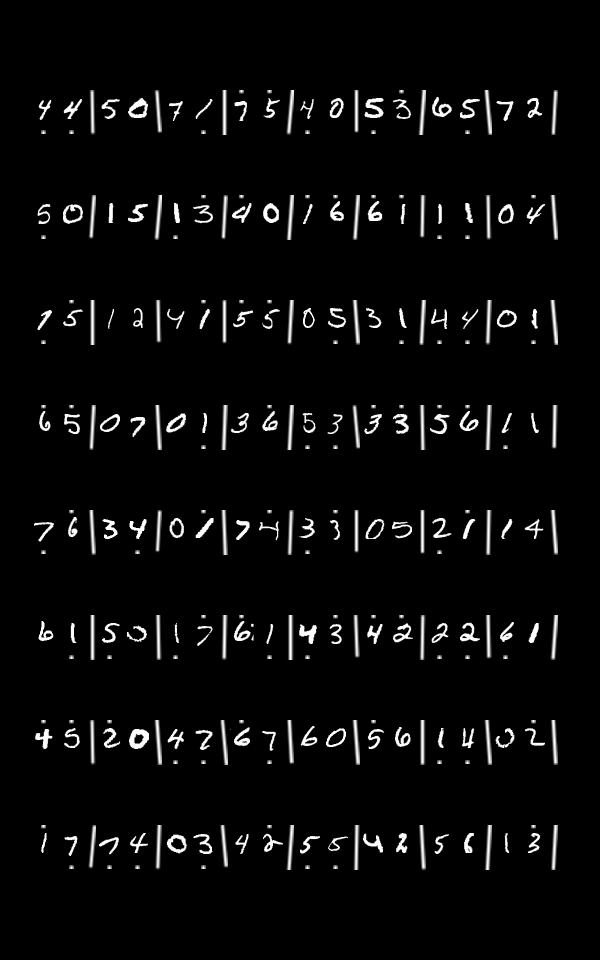 4 4 | 5 0 | 7 1 | 7 5 | 4 0 | 5 3 | 6 5 | 7 2 |
5 0 | 1 5 | 1 3 | 4 0 | 1 6 | 6 1 | 1 1 | 0 4 |
1 5 | 1 2 | 4 1 | 5 5 | 0 5 | 3 1 | 4 4 | 0 1 |
6 5 | 0 7 | 0 1 | 3 6 | 5 3 | 3 3 | 5 6 | 1 1 |
7 6 | 3 4 | 0 1 | 7 4 | 3 3 | 0 5 | 2 1 | 1 4 |
6 1 | 5 0 | 1 7 | 6 1 | 4 3 | 4 2 | 2 2 | 6 1 |
4 5 | 2 0 | 4 7 | 6 7 | 6 0 | 5 6 | 1 4 | 0 2 |
1 7 | 7 4 | 0 3 | 4 2 | 5 5 | 4 2 | 5 6 | 1 3 |